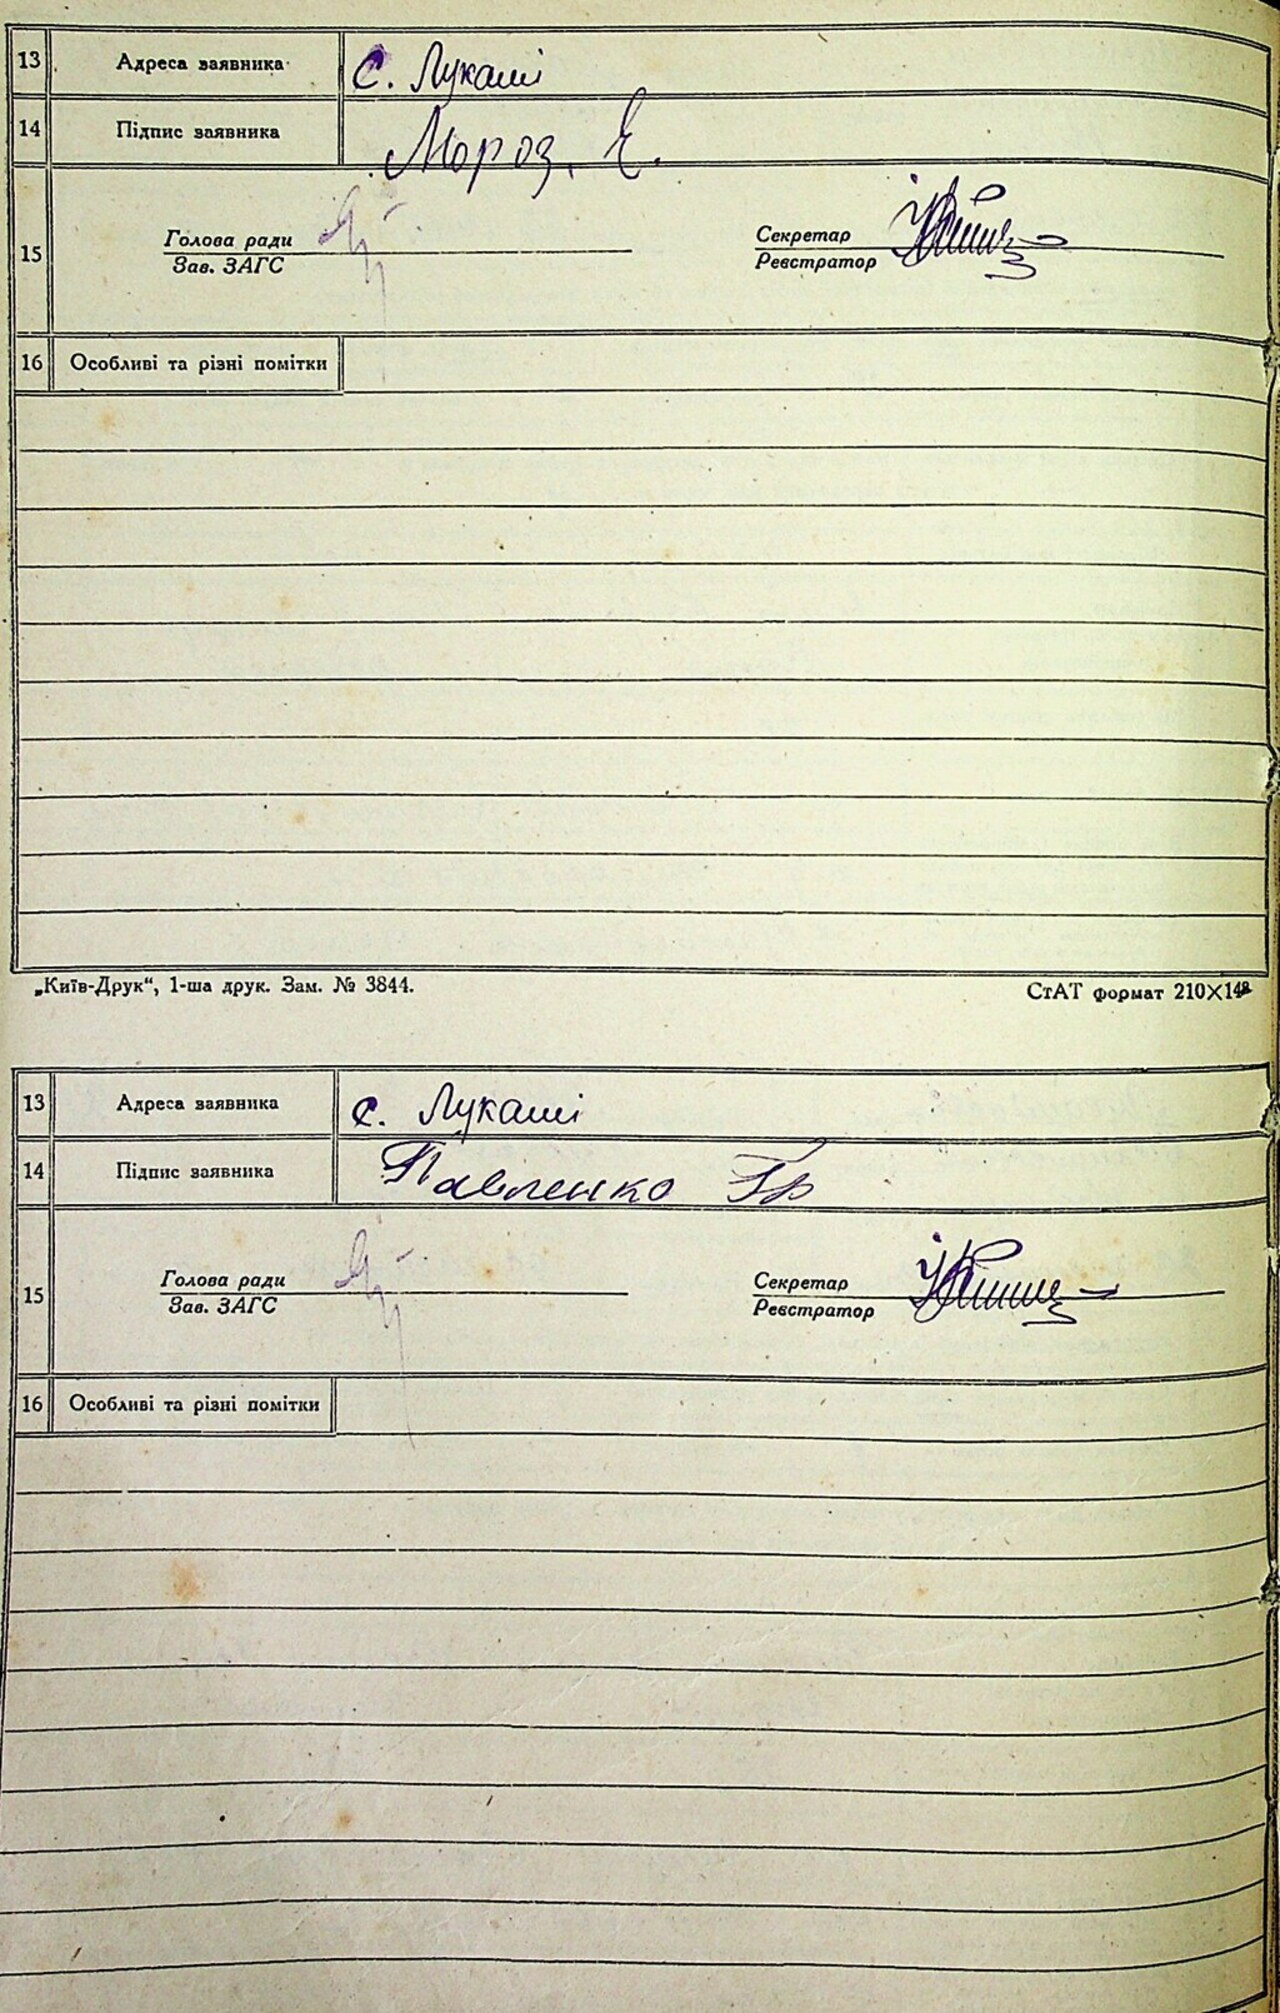 13 Адреса заявника с. Лукаші
14 Підпис заявника Мороз. Е.
15 Голова ради Секретар
Зав. ЗАГС Реєстратор
16 Особливі та різні помітки
„Київ-Друк“, 1-ша друк. Зам. № 3844. СтАТ формат 210×148
13 Адреса заявника с. Лукаші
14 Підпис заявника Павленко Гр
15 Голова ради Секретар
Зав. ЗАГС Реєстратор
16 Особливі та різні помітки